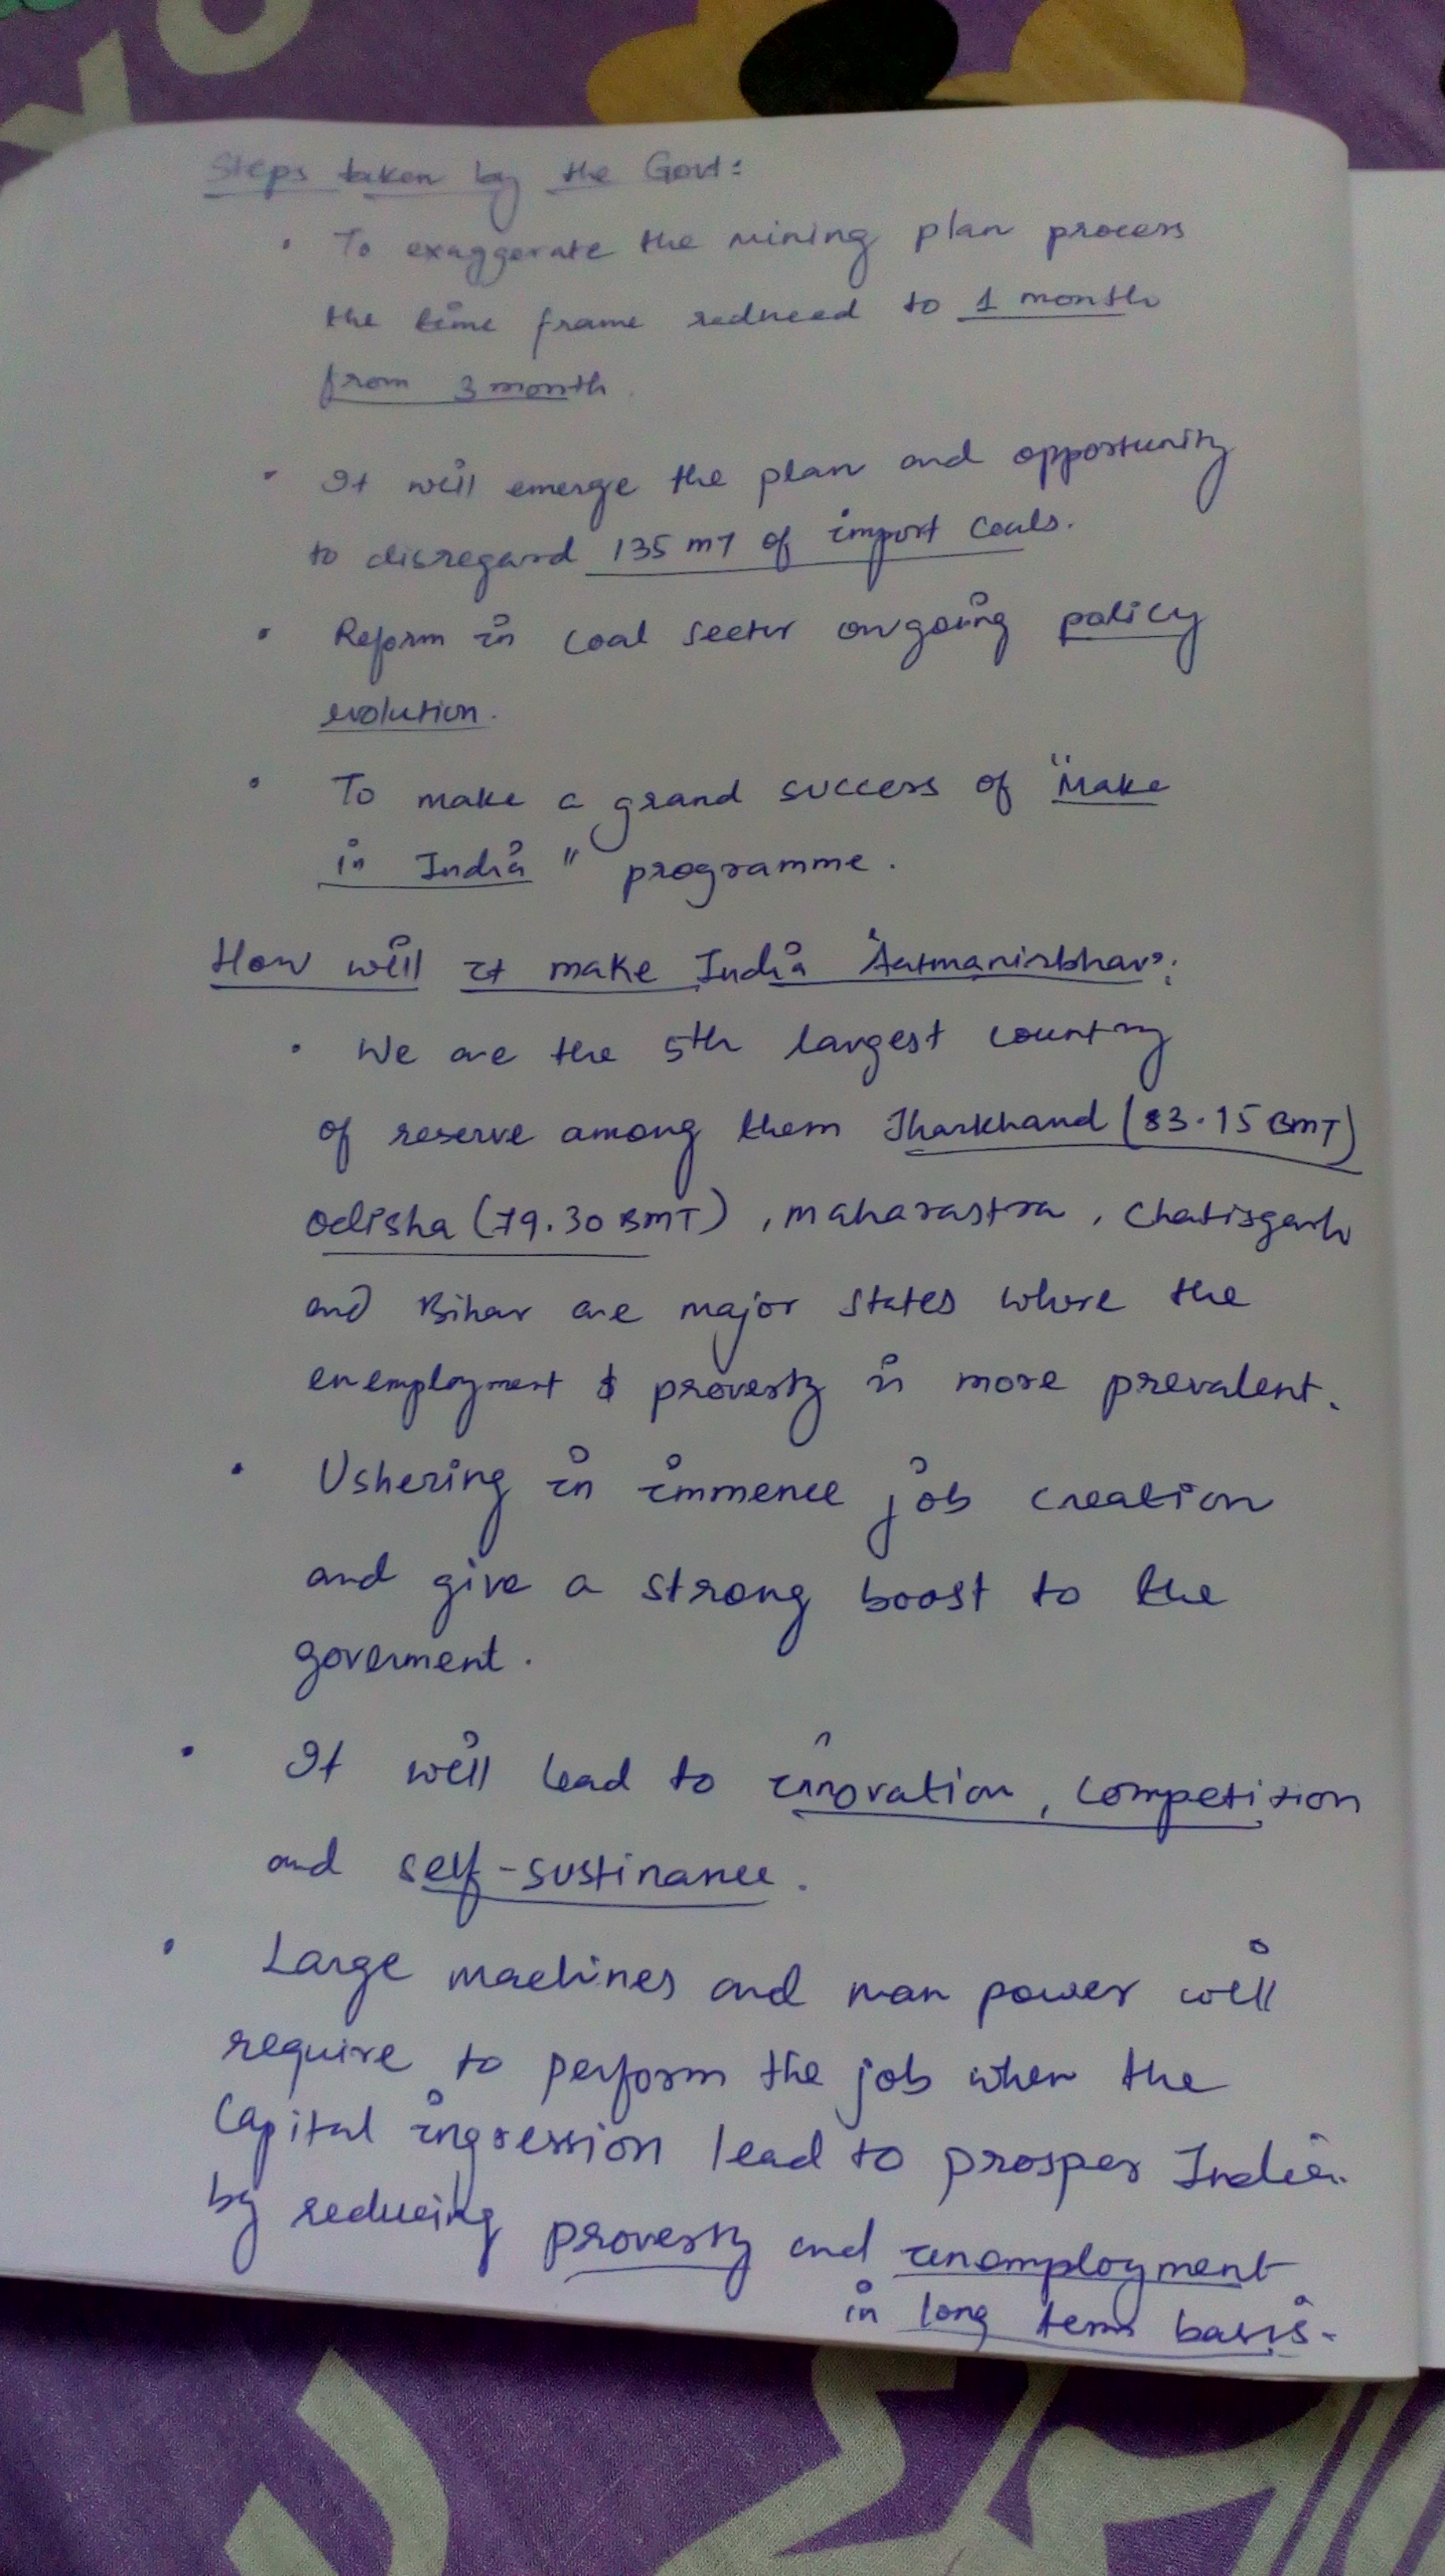 Steps taken by the Govt:
• To exaggerate the mining plan process
the time frame reduced to 1 month
from 3 month.
• It will emerge the plan and opportunity
to disregard 135 MT of import Coals.
• Reform in coal sector ongoing policy
evolution.
• To make a grand success of "Make
in India" programme.
How will it make India 'Aatmanirbhar':
• We are the 5th largest country
of reserve among them Jharkhand (83.15 BMT)
Odisha (79.30 BMT), Maharastra, Chatisgarh
and Bihar are major states where the
enemployment & proverty is more prevalent.
• Ushering in immence job creation
and give a strong boost to the
goverment.
• It will lead to innovation, Competition
and self-sustinance.
• Large machines and man power will
require to perform the job when the
Capital ingression lead to prosper India
by reducing proverty and unemployment
in long term basis.